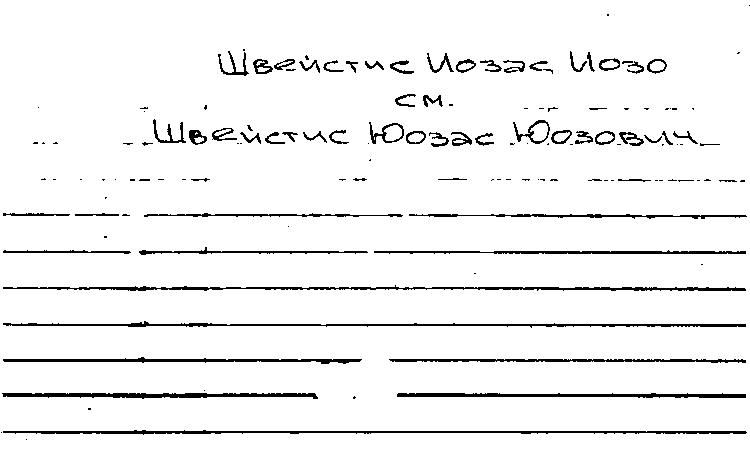 Швейстис Иозас Иозо
см.
Швейстис Юозас Юозович